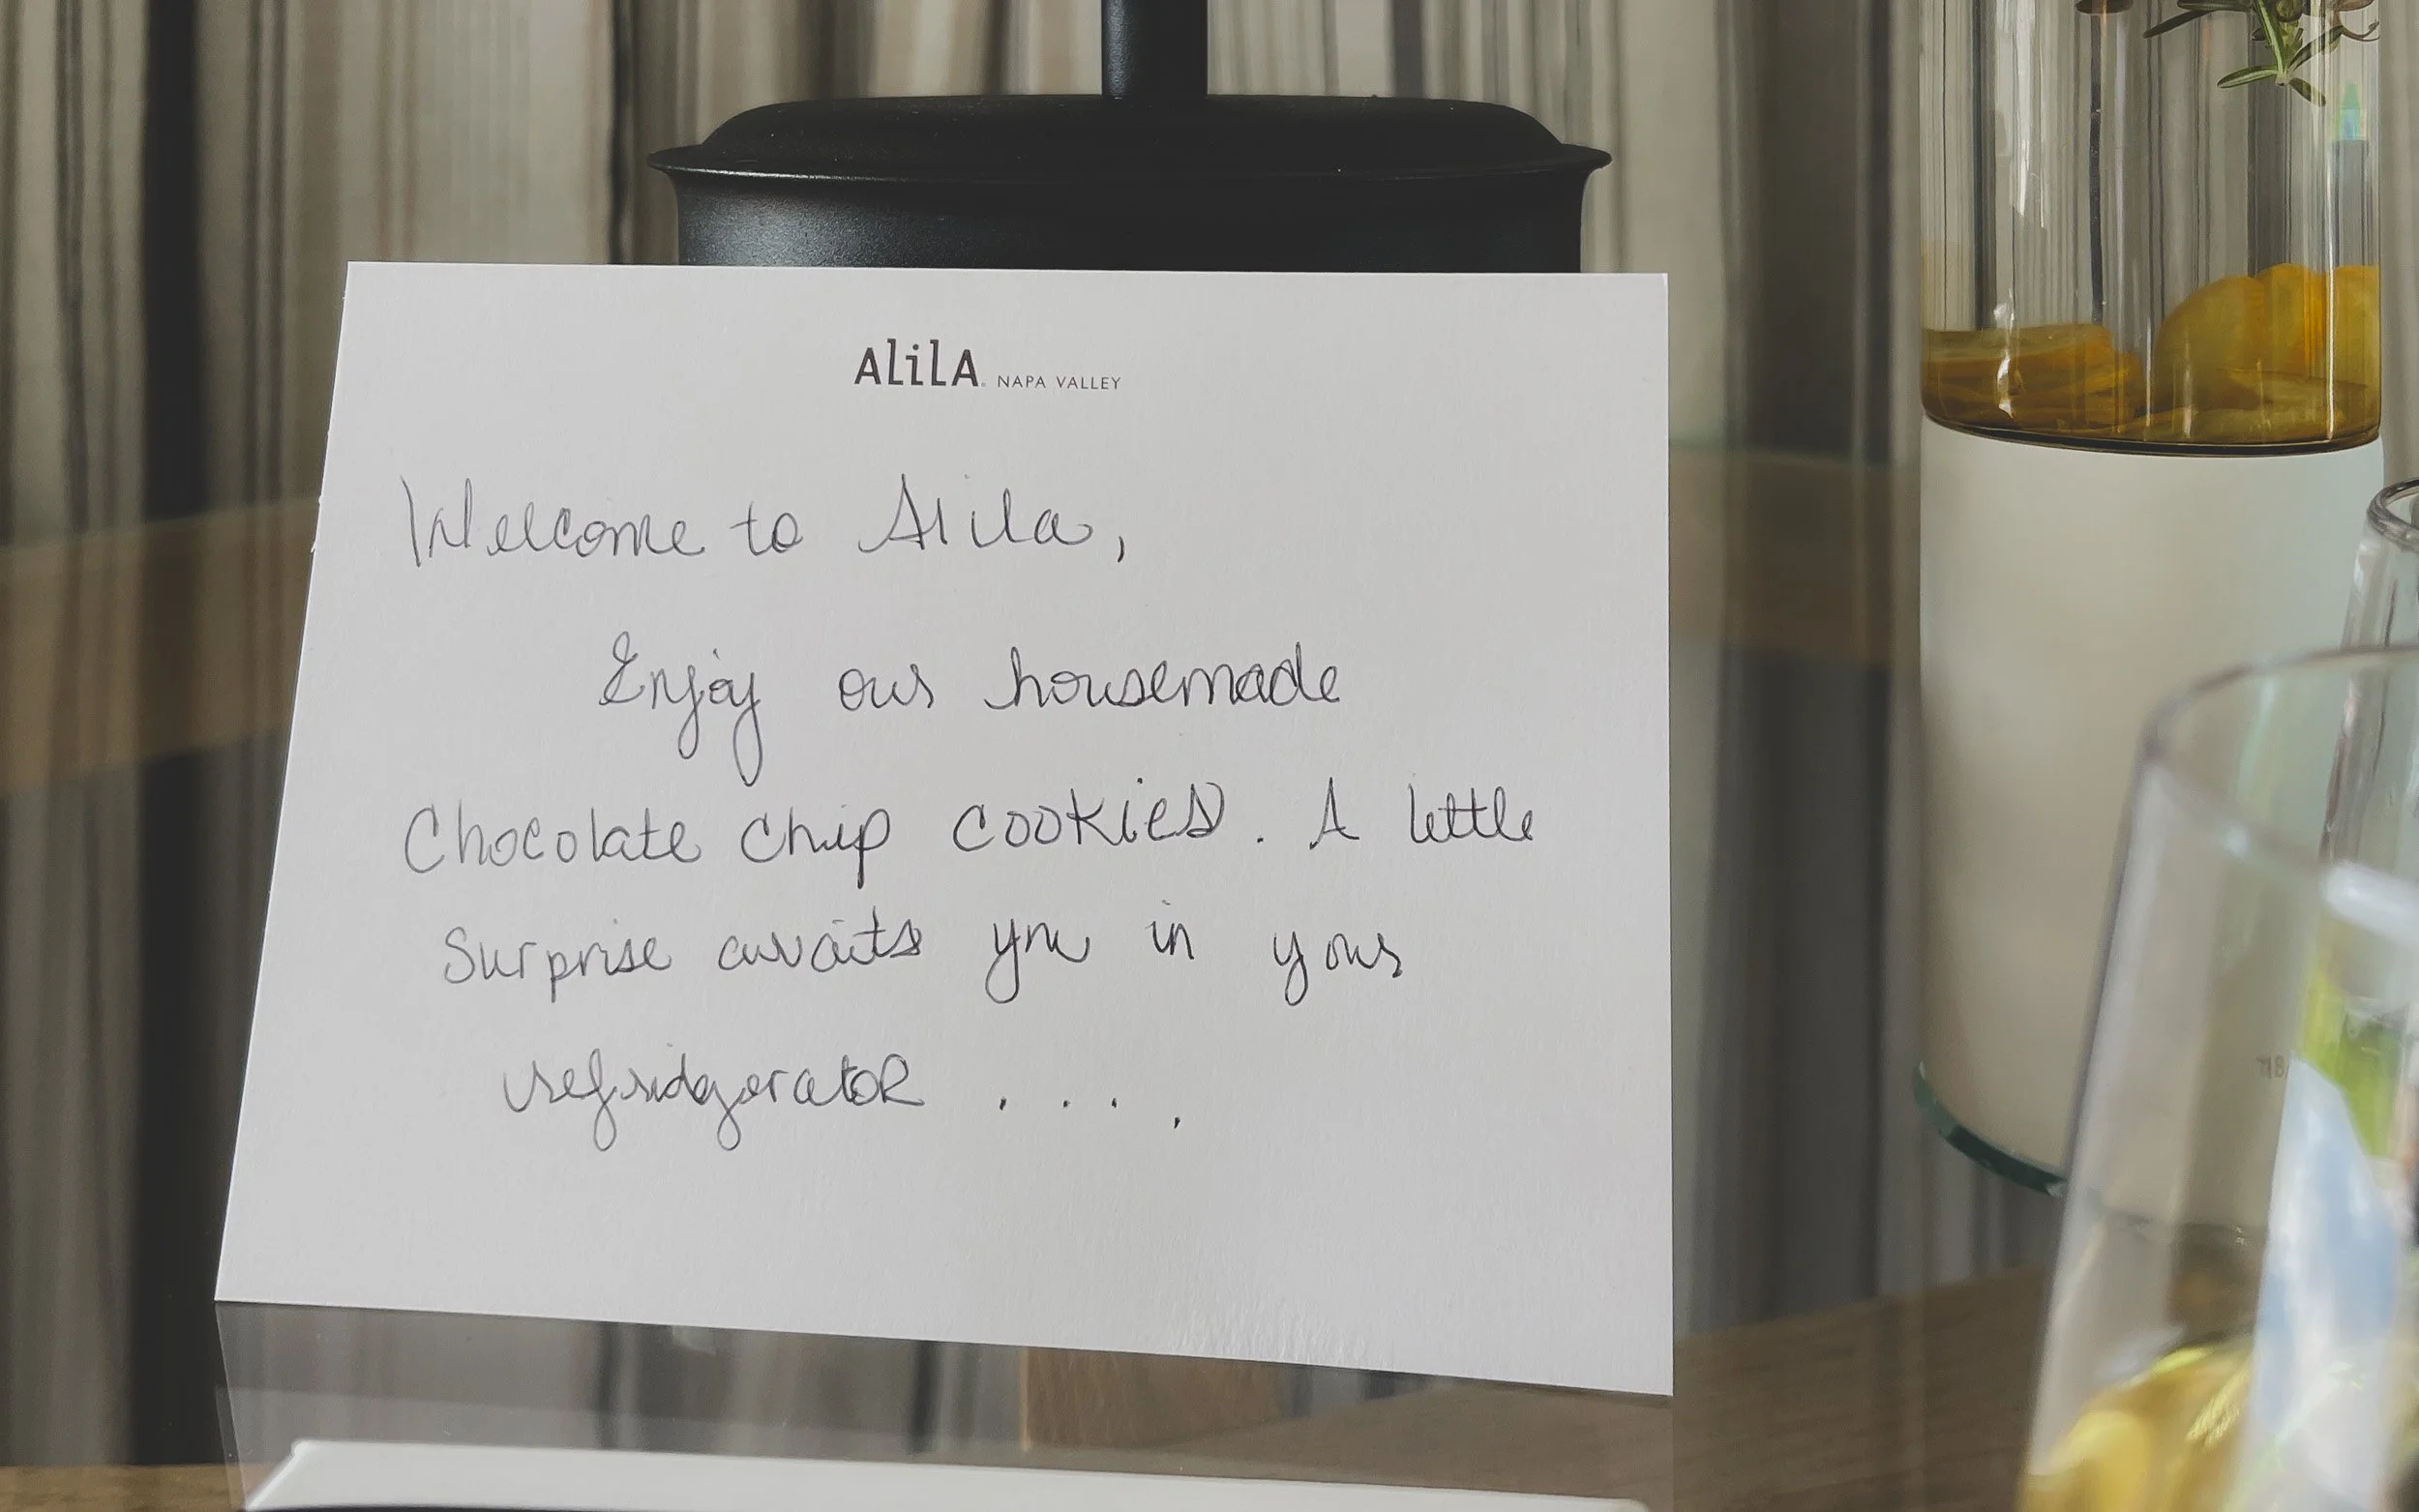 ALiLA NAPA VALLEY
Welcome to Alila,
Enjoy our housemade
Chocolate chip cookies. A little
Surprise awaits you in your
refridgerator ....